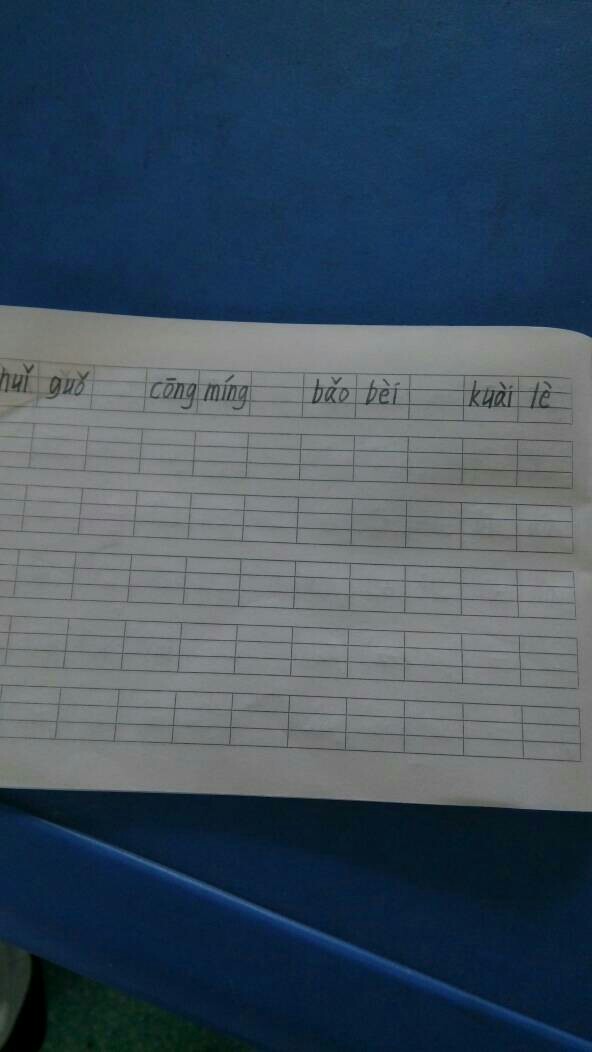 guǒ cōng míng bǎo bèi kuài lè